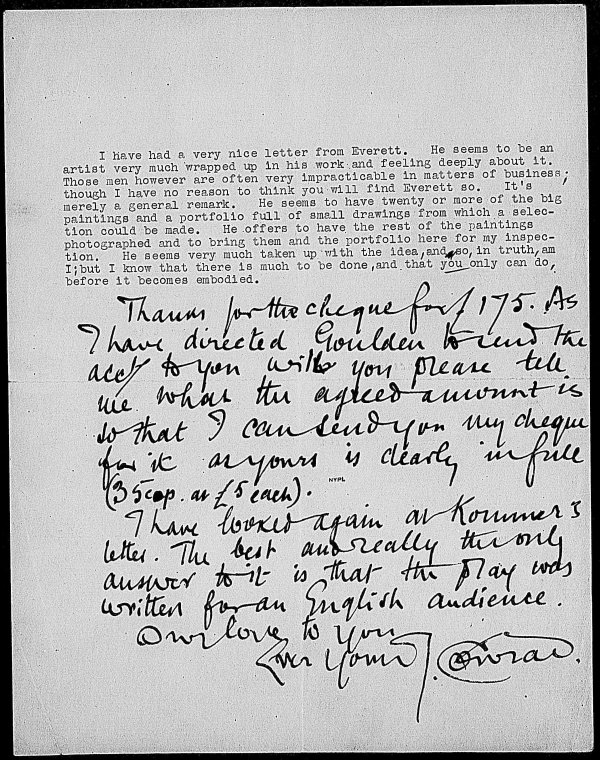 I have had a very nice letter from Everett.   He seems to be an
artist very much wrapped up in his work and feeling deeply about it.
Those men however are often very impracticable in matters of business;
though I have no reason to think you will find Everett so.   It's
merely a general remark.   He seems to have twenty or more of the big
paintings and a portfolio full of small drawings from which a selec-
tion could be made.   He offers to have the rest of the paintings
photographed and to bring them and the portfolio here for my inspec-
tion.   He seems very much taken up with the idea, and so, in truth, am
I; but I know that there is much to be done, and that you only can do,
before it becomes embodied.
Thanks for the cheque for £175. As
I have directed Goulden to send the
acct to you will you please tell
me what the agreed amount is
so that I can send you my cheque
for it as yours is clearly in full
(35 cop. at £5 each).
NYPL
I have looked again at Kommer's
letter. The best and really the only
answer to it is that the play was
written for an English audience.
Our love to you
Ever Yours
J. Conrad.